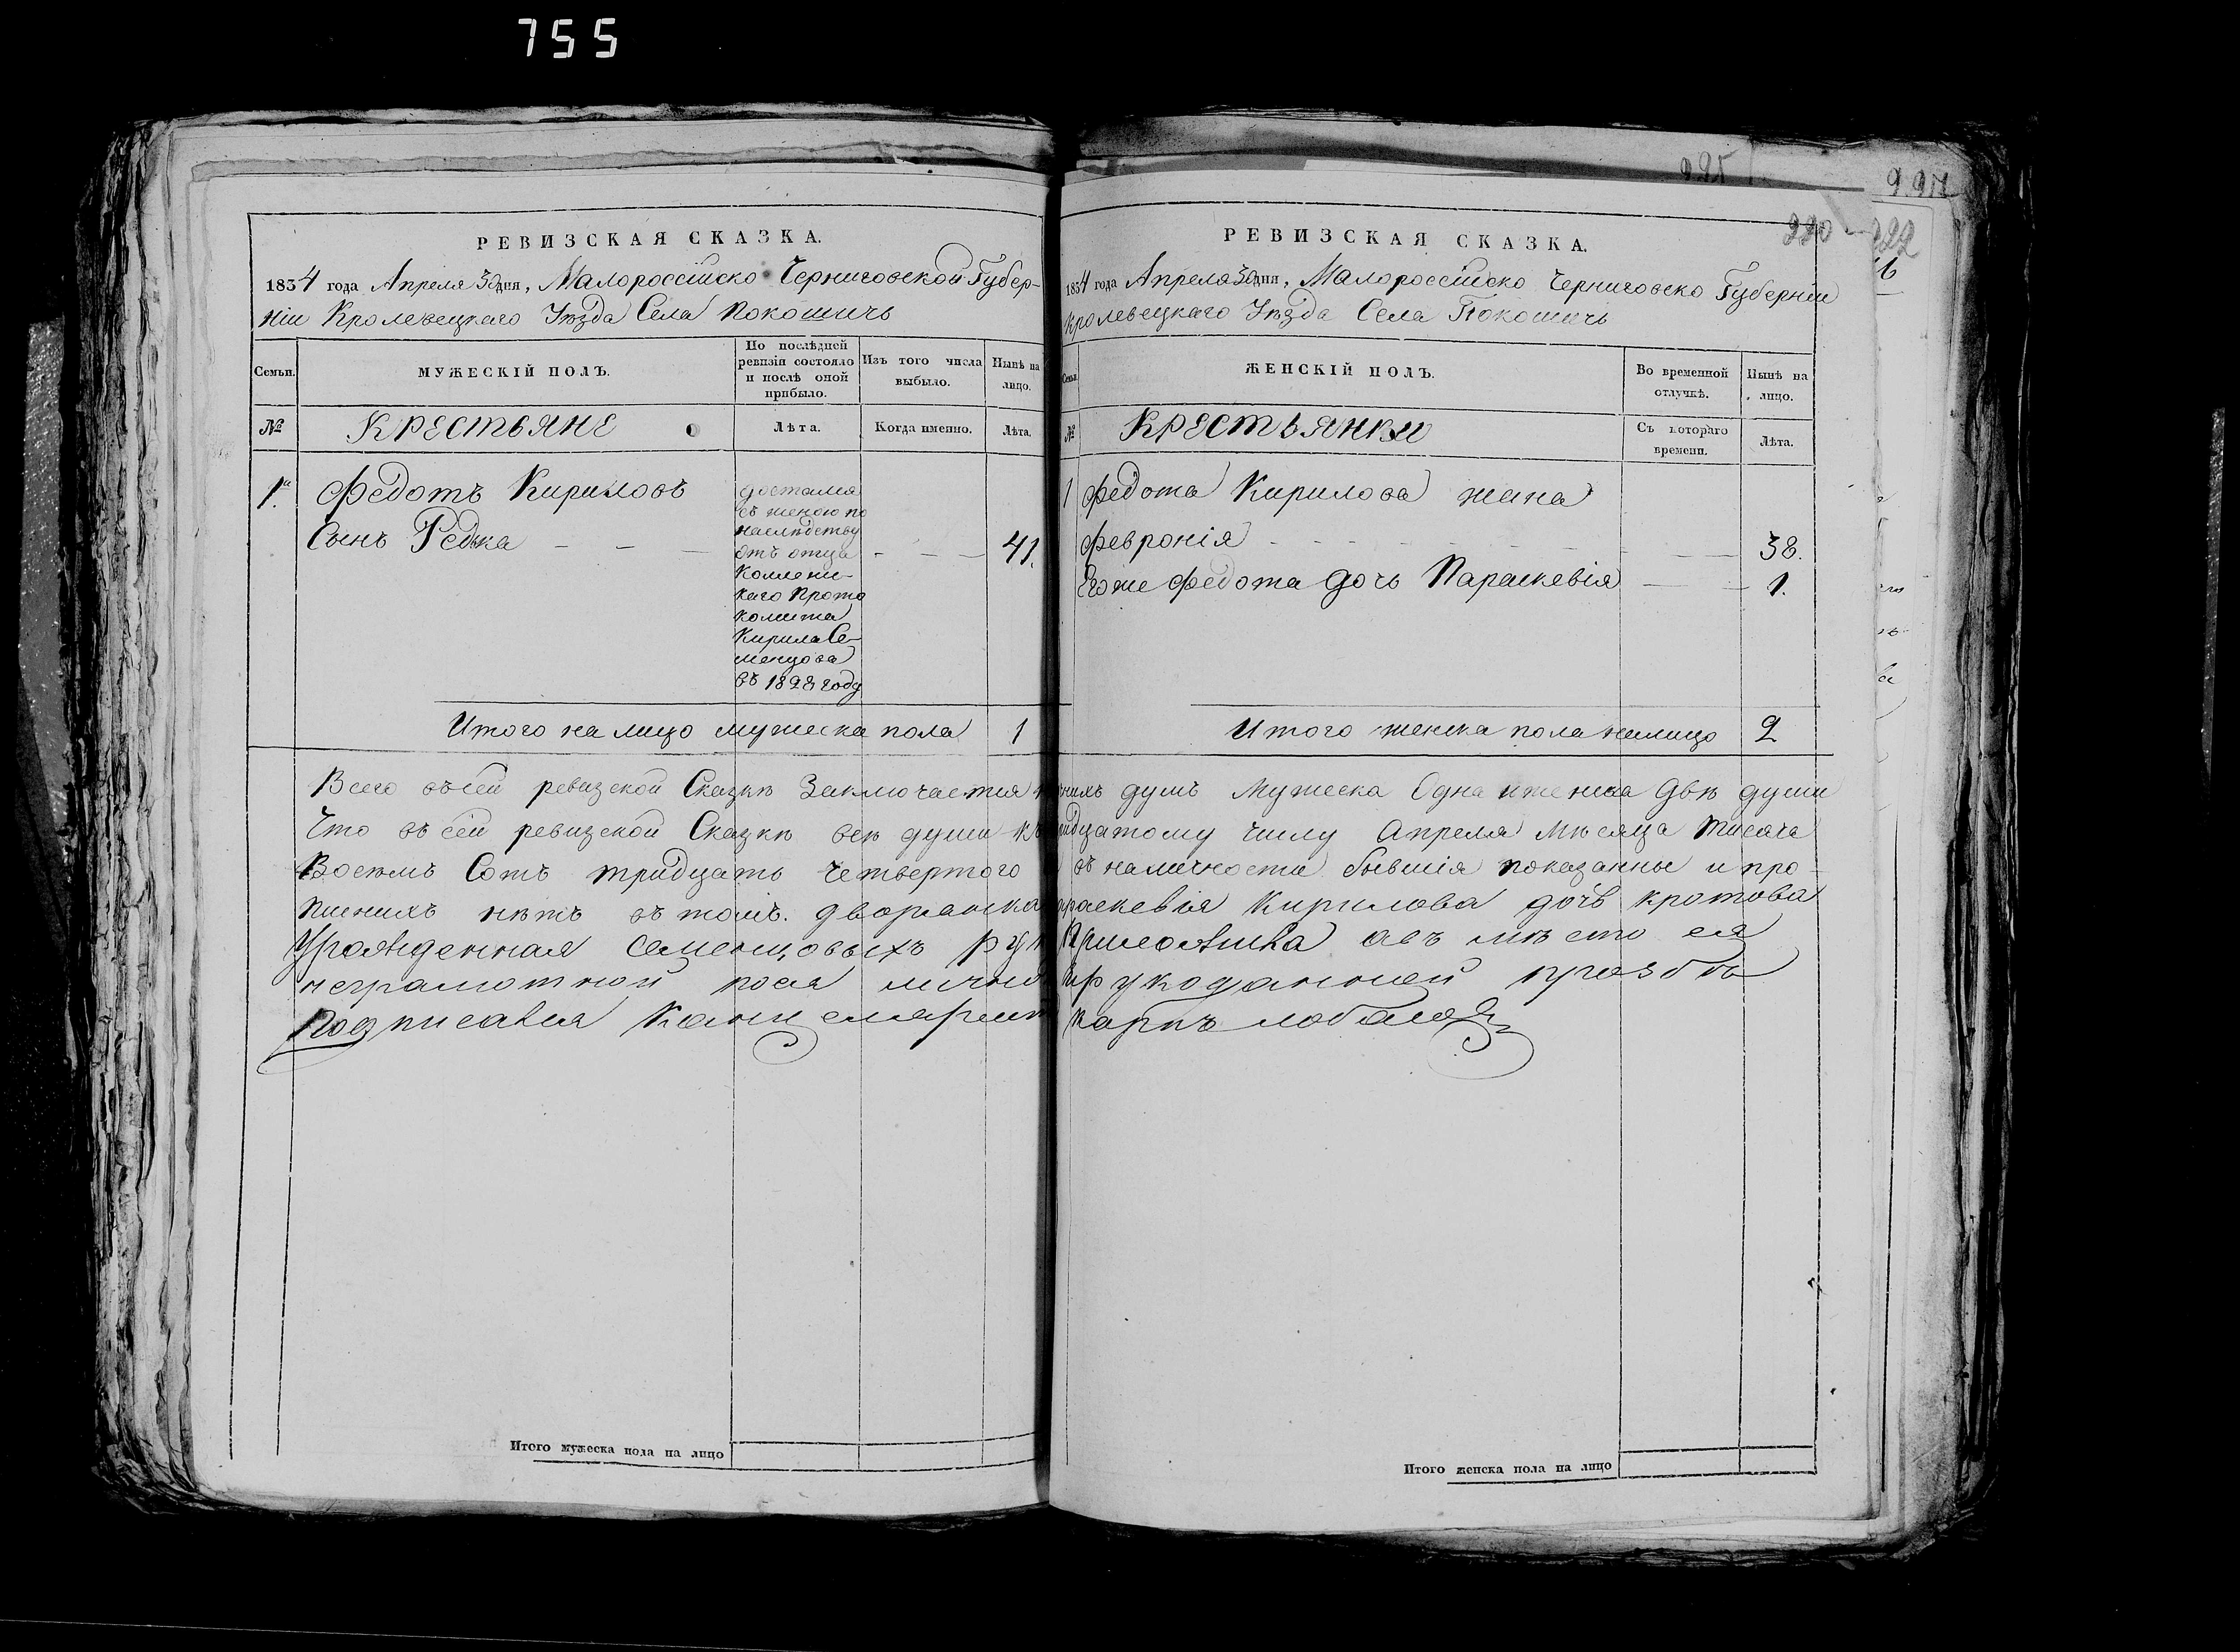 755
РЕВИЗСКАЯ СКАЗКА.
1834 года Апреля 30 дня, Малороссійско Черниговской Губер-
ніи Кролевецкаго Уѣзда Села Покошичь
Семьи.
МУЖЕСКІЙ ПОЛЪ.
По послѣдней ревизіи состояло и послѣ оной прибыло.
Изъ того числа выбыло.
Нынѣ на лицо.
№
Крестьяне
Лѣта.
Когда именно.
Лѣта.
1. Федотъ Кириловъ
Сынъ Редка
41.
достался
съ женою по
наслѣдству
отъ отца
Коллежи-
каго Прото
колиста
Кирила Се-
менцова
въ 1828 году
Итого на лицо мужеска пола 1
225
997
220
222
РЕВИЗСКАЯ СКАЗКА.
1834 года Апреля 30 дня, Малороссійско Черниговско Губерніи
Кролевецкаго Уѣзда Села Покошичь
Семьи
ЖЕНСКІЙ ПОЛЪ.
Во временной отлучкѣ.
Нынѣ на лицо.
№
Крестьянки
Съ котораго времени.
Лѣта.
1 Федота Кирилова жена
Февронія 38.
Егоже Федота дочь Параскевія 1.
Итого женска пола налицо 2
Всего въсей ревизской Сказкѣ Заключается душъ Мужеска Одна иженска двѣ души
Что въ сей ревизской Сказкѣ всѣ души къ тридцатому числу Апреля Мѣсяца тисяча
Восемъ Сотъ тридцать четвертого въ наличности бывшія показанны и про-
пиених нѣтъ въ томъ. дворянка Параскевія Кирилова дочь кротова
Урожденная семенцовыхъ руку Приложила авъ мѣсто ея
неграмотной посл лично ирукоданней прозбѣ
Подписался Канцеляристъ Карпъ
Итого мужеска пола на лицо
Итого женска пола на лицо